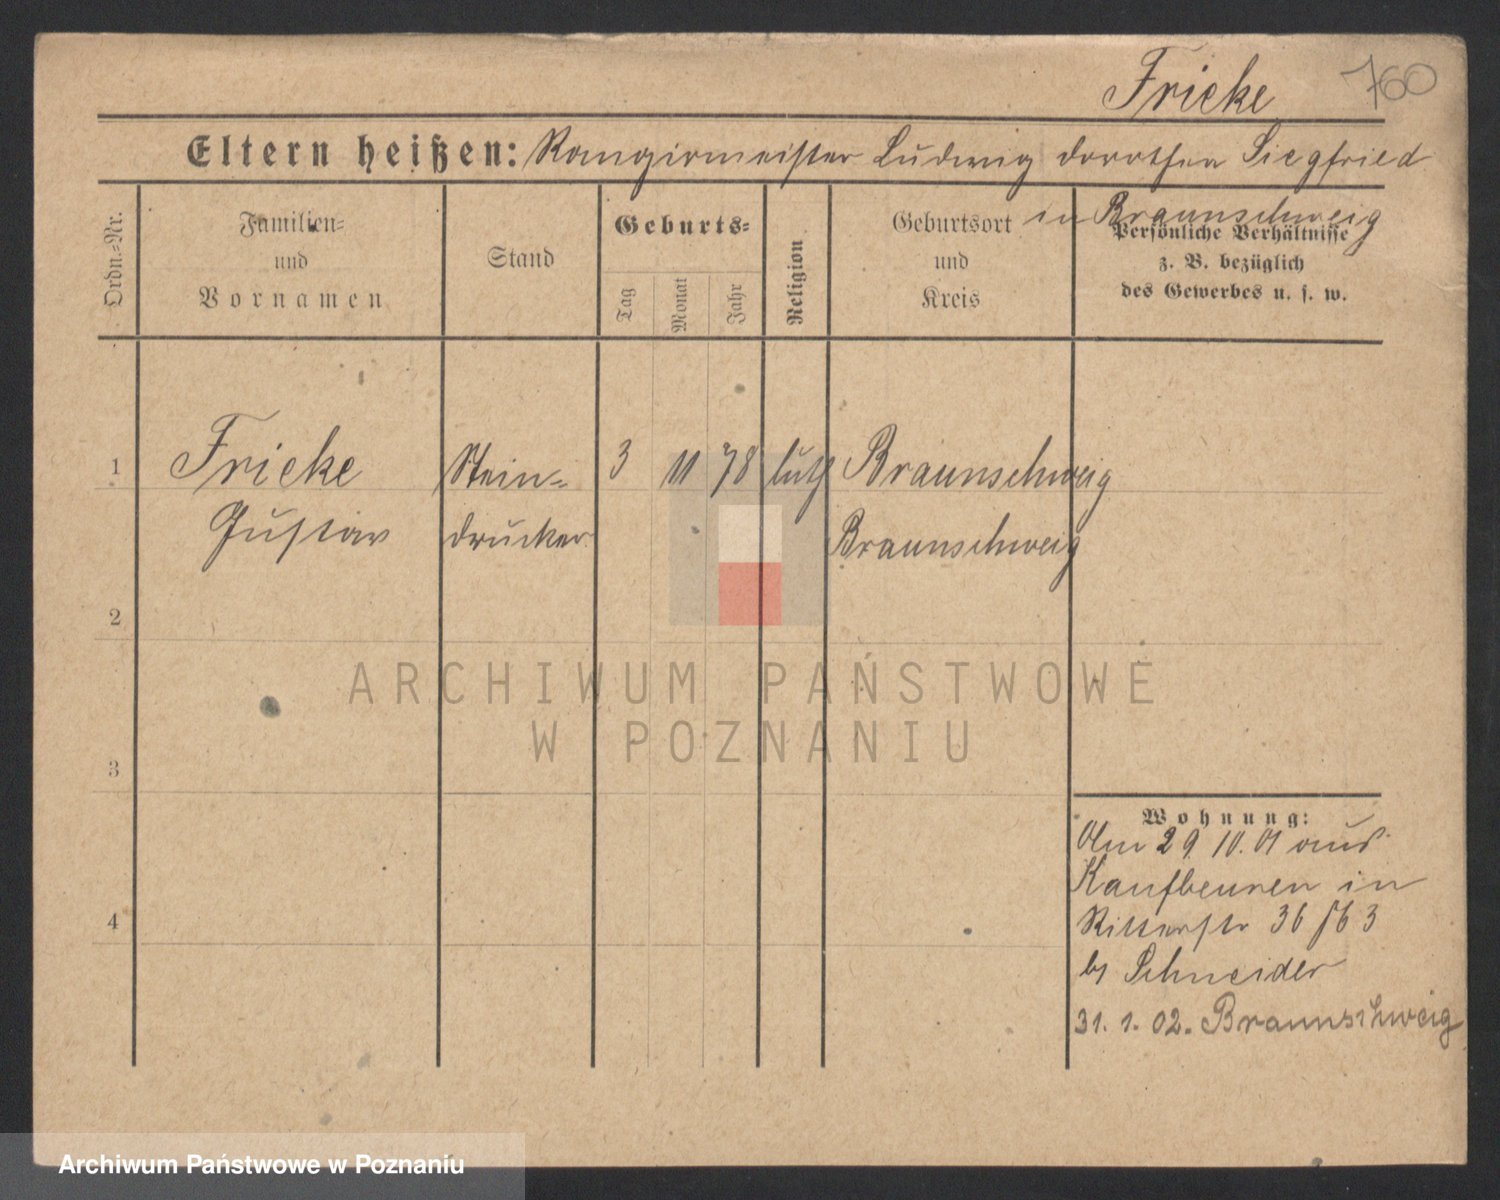 Fricke 760
Eltern heißen: Rangirmeister Ludwig Dorothea Siegfried
in Braunschweig
Ordn.-Nr.
Familien-
und
Vornamen
Stand
Geburts-
Tag
Monat
Jahr
Religion
Geburtsort
und
Kreis
Persönliche Verhältnisse
z. B. bezüglich
des Gewerbes u. s. w.
1 Fricke Stein- 3 11 78 luth Braunschweig
Gustav drucker Braunschweig
2
3
4
ARCHIWUM PAŃSTWOWE
W POZNANIU
Wohnung:
Am 29. 10. 01 aus
Kaufbeuren in
Ritterstr 36 63
b/ Schneider
31. 1. 02. Braunschweig
Archiwum Państwowe w Poznaniu